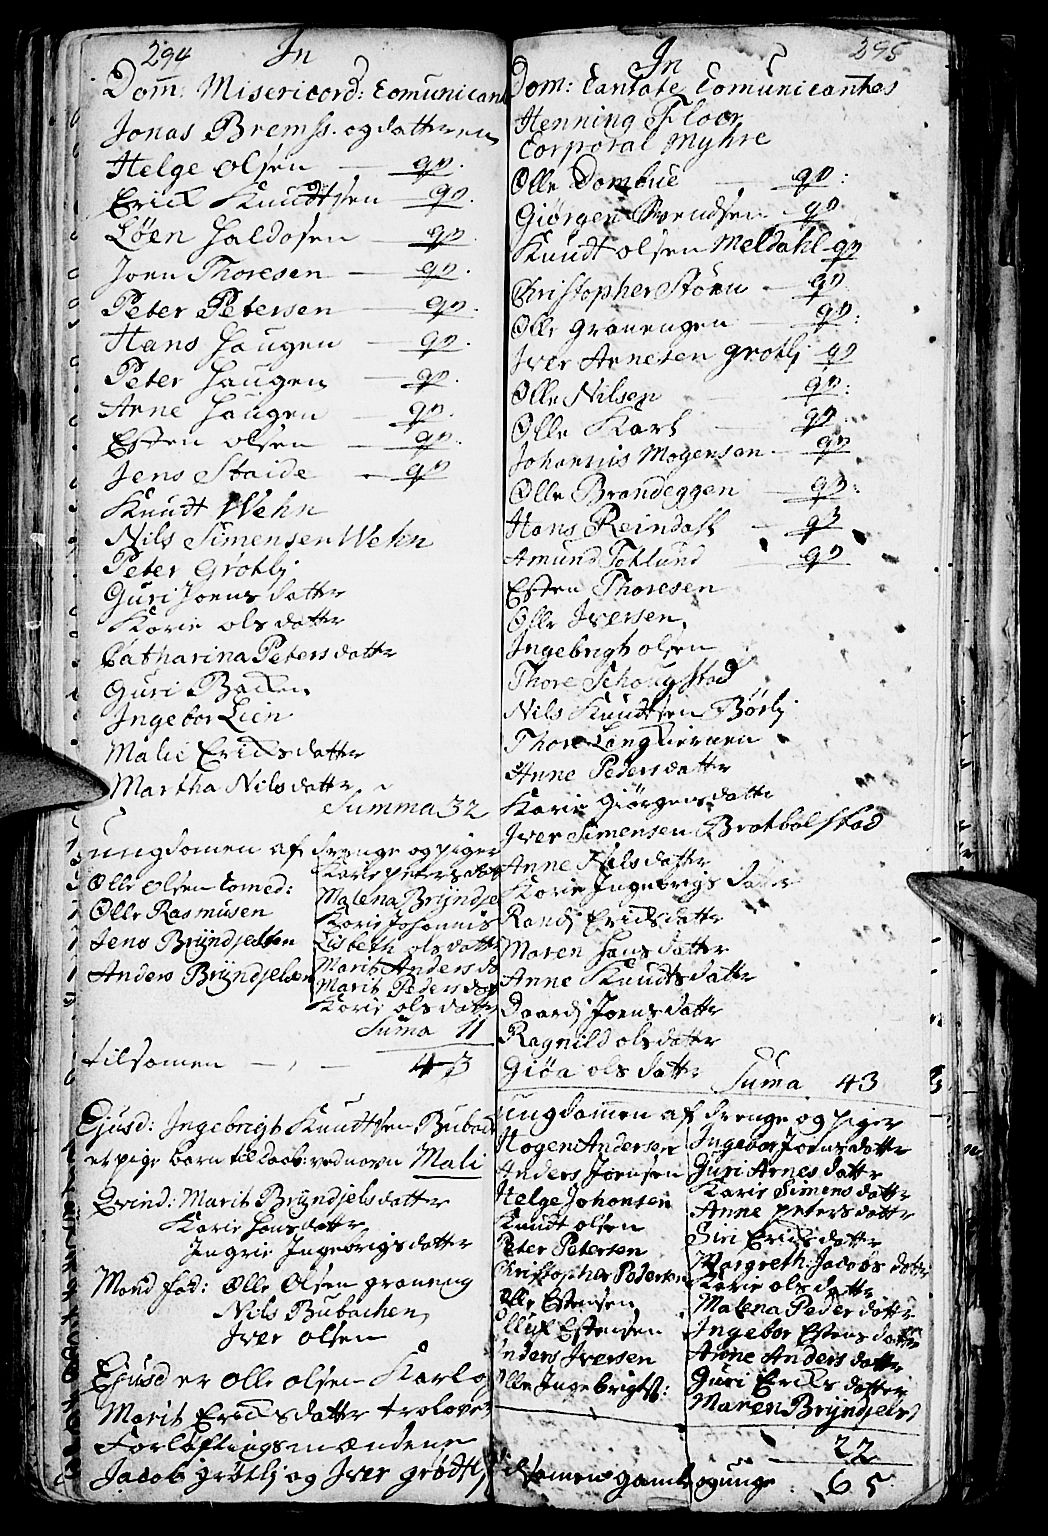 294
In
Dom: Misericord: Comunicant
Jonas Bremss. og datteren
Helge Olsen — qv.
Erick Knudtsen — qv.
Löen Haldosen — qv.
Joen Thoresen — qv.
Peter Petersen — qv.
Hans Haugen — qv.
Peter Haugen — qv.
Arne Haugen — qv.
Esten olsen — qv.
Jens Staide — qv
Knudt Wehn
Nils Simensen Wehn
Peter Grötlj
Guri Joens datter
Karie ols datter
Catharina Peters datter
Guri Backen
Ingebor Lien
Malie Ericksdatter
Martha Nilsdatter
Summa 32
ungdomen af drenge og piger
Olle Olsen Comed:
Olle Rasmusen
Jens Bryndjelsen
Anders Bryndjelsen
Karie peters dat
Malena Bryndje
Karie Johannis
Lisbeth olsdatter
Marit Anders da
Marit Peders dat
Karie ols datter
Suma 11
tilsamen — 43
Ejusd: Ingebrigt Knudtsen Bubach
et pige barn til daab: ved navn Mali
Qvind: Marit Bryndjelsdatter
Karie Hansdatter
Ingrie Ingebrigsdatter
Mand fad: Olle Olsen graneng
Nils Bubachen
Iver olsen
Ejusd er olle olsen Karl og
Marit Ericksdatter trolovet
Forlöftingsmændene
Jacob grötlj og Iver grödtlj
295
In
Dom: Cantate Comunicantes
Henning Floor
Corporal Myhre
Olle Dombue — qv:
Giörgen Svendsen — qv
Knudt olsen Meldahl qv
Christopher Stöen — qv
Olle Granengen — qv:
Iver Arnesen grötlj qv
Olle Nilsen — qv:
Olle Karl — qv
Johannis Mogensen — qv
Olle Brandeggen — q3:
Hans Reindahl — q3
Amund Toklund — qv
Esten Thoresen
Olle Iversen
Ingebrigt olsen
Thore Schougstad
Nils Knudtsen Börlj
Thore Langkiernen
Anne Pedersdatter
Karie Giörgensdatter
Iver Simensen Bratbolstad
Anne Nilsdatter
Karie Ingebrigs dater
Randj Ericksdatter
Maren Hansdatter
Anne Knudtsdatter
Daardj Joensdatter
Ragnild olsdatter
Giöa ols datter
Suma 43
ungdommen af drenge og piger
Hogen Andersen
Anders Joensen
Helge Johansen
Knudt olsen
Peter Petersen
Christopher Pedersen
Olle Estensen
Olluf Estensen
Anders Iversen
Olle Ingebrigts:
Ingebor Joensdatter
Guri Arnes datter
Karie Simens datter
Anne peters datter
Siri Ericksdatter
Margreth: Jacobs dater
Karie ols datter
Malena Peder datter
Ingebor Estens datter
Anne Anders datter
Guri Ericks datter
Maren Bryndjels d
22
tilsamen gamle og unge 65